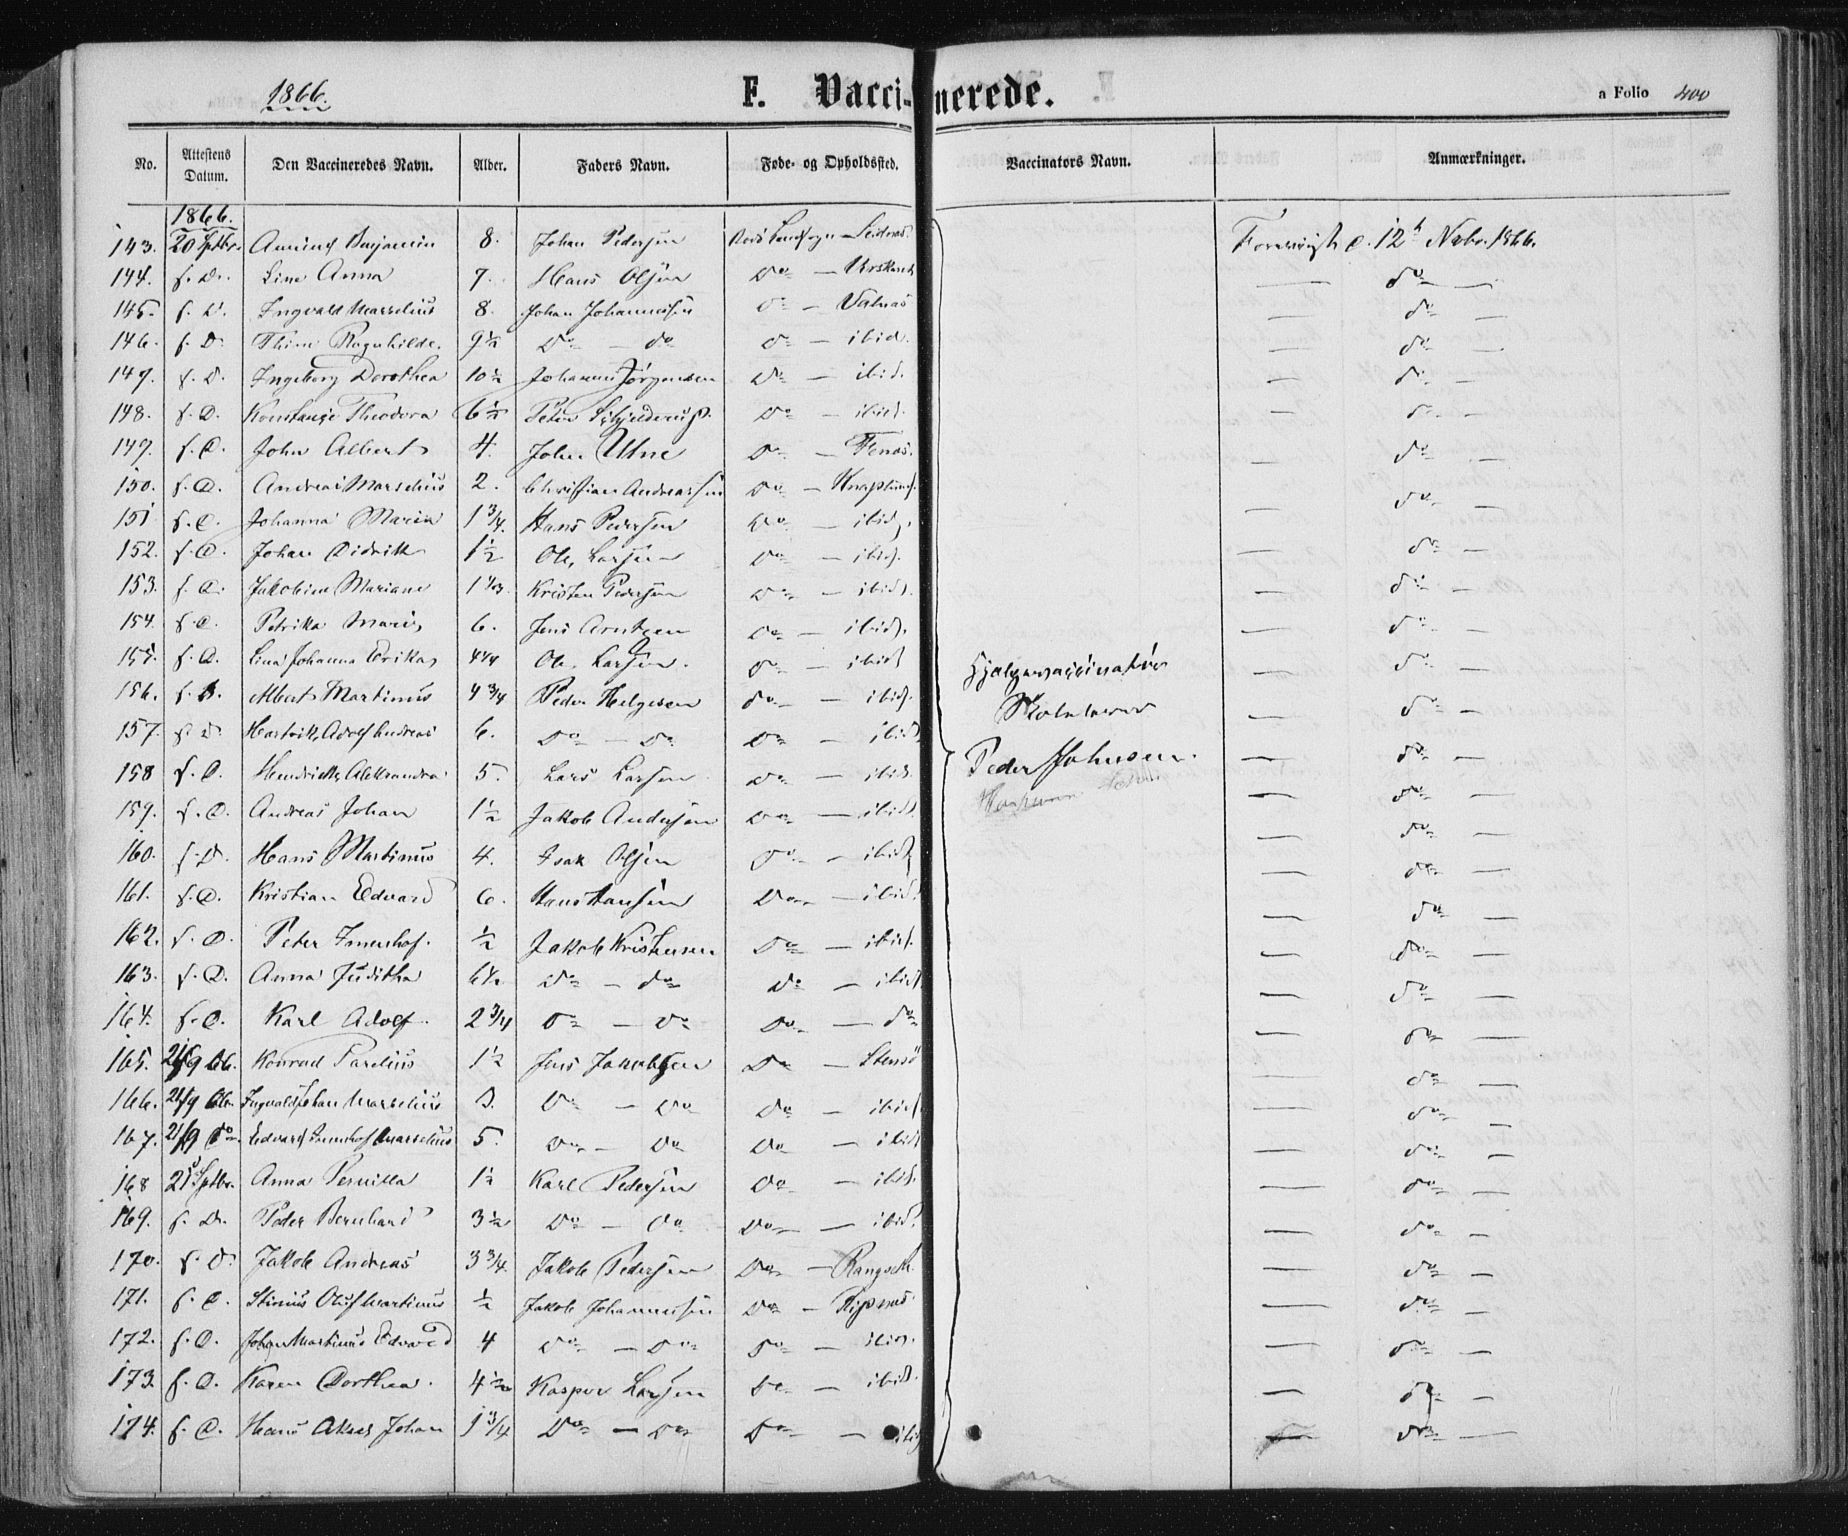 1866.
F. Vaccinerede.
a Folio 400
No. Attestens Datum. Den Vaccineredes Navn. Alder. Faders Navn. Føde- og Opholdssted. Vaccinators Navn. Anmærkninger.
1866.
143. 20 Sptbr. Benjamin 8. Johan Pedersen Forevist d. 12t Novbr. 1866.
144. s. D. Line Anna 7. Hans Olsen Do — — do —
145. s. D. Ingvald Marselius 8. Johan Johannessen do — Valnæs — do —
146. s. D. Thine Ragnhilde. 9½ Do — do do — ibid. — do —
147. s. D. Ingeborg Dorothea 10½ Johannes Jörgensen Do — ibid. — do —
148. s. D. Konstanse Theodora 6½ Peter Schjelderup Do — ibid. — do —
149. s. D. John Albert 4. John Utne Do — Tenæs. — do —
150. s. D. Andreas Marselius 2. Christian Andreassen Do — Knaplund. — do —
151. s. D. Johanna Maria 1¾. Hans Pedersen Do — ibid. — do —
152. s. D. Johan Didrik 1½ Ole Larsen Do — ibid. — do —
153. s. D. Jakobine Mariane 1⅓. Kristen Pedersen Do — ibid. — do —
154. s. D. Petrika Maria 6. Jens Arntzen Do — ibid. — do —
155. s. D. Lina Johanna Erika 4¼ Ole Larsen. do — ibid. Hjælpevaccinatör — do —
156. s. D. Albert Martinus 4¾ Peder Helgesen do — ibid. Skolelærer — do —
157. s. D. Hartvik Adolf Andreas 6. Do — Do Do — ibid. Peder Johnsen. — do —
158 s. D. Hendrikke Aleksandra 5. Lars Larsen Do — ibid. — do —
159. s. D. Andreas Johan 1½ Jakob Andersen Do — ibid. — do —
160. s. D. Hans Martinus 4. Isak Olsen Do — ibid. — do —
161. s. D. Kristian Edvard 6. Hans Hansen Do — ibid. — do —
162. s. D. Peter Imenhof. ½ Jakob Kristensen Do — ibid. — do —
163. s. D. Anna Juditha 6½ Do — do Do — ibid. — do —
164. s. D. Karl Adolf. 2¾ Do — Do Do — do — do —
165. 21/9 66. Konrad Parelius 1½ Jens Jakobsen Do — Stensö — do —
166. 21/9 66. Ingvald Johan Marselius 3. Do — Do Do — ibid. — do —
167. 21/9 do Edvard Imenhof Marselius 5. Do — Do Do — ibid — do —
168 21 Sptbr. Anna Pernilla 1½ Karl Pedersen Do — ibid. — do —
169. s. D. Peder Bernhard 3½ Do — Do Do — ibid. — do —
170. s. D. Jakob Andreas 3¾ Jakob Pedersen Do — — do —
171. s. D. Oluf Martinus ½ Jakob Johannessen Do — — do —
172. s. D. Johan Martinus Edvard 4 Do — Do Do — ibid. — do —
173. s. D. Karen Dorthea. 4½ Kasper Larsen Do — ibid. — do —
174. s. D. Hans Johan 1¾ Do — Do Do — ibid — do —